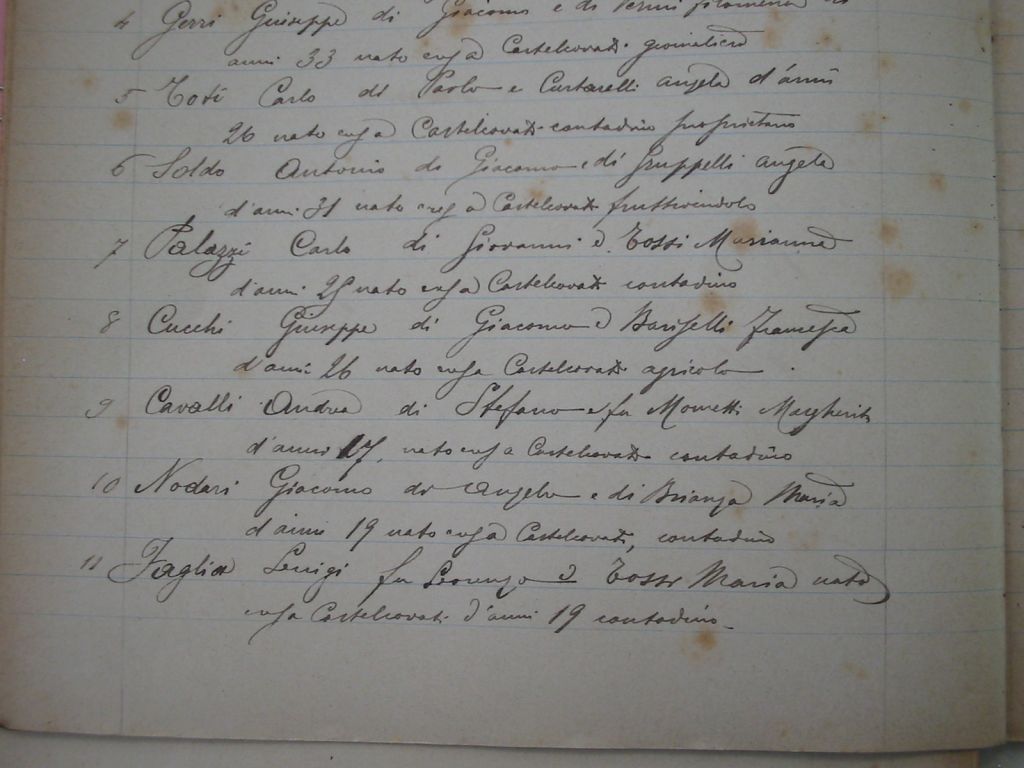 4 Gorri Giuseppe di Giacomo e di
anni 33 nato e res a Castelcovati giornaliero
5 Toti Carlo di Paolo e Cantarelli Angela d'anni
26 nato e res a Castelcovati contadino proprietario
6 Soldo Antonio di Giacomo e di Gruppelli Angela
d'anni 31 nato e res a Castelcovati fruttivendolo
7 Palazzi Carlo di Giovanni e Tossi Marianna
d'anni nato e res a Castelcovati contadino
8 Cucchi Giuseppe di Giacomo e Bariselli Francesca
d'anni 26 nato e res a Castelcovati agricolo
9 Cavalli Andrea di Stefano e fu Mometti Margherita
d'anni 17, nato e res a Castelcovati contadino
10 Nodari Giacomo di Angelo e di Brianza Maria
d'anni 19 nato e res a Castelcovati, contadino
11 Faglia Luigi fu Lorenzo e Tossi Maria nato
e res a Castelcovati d'anni 19 contadino